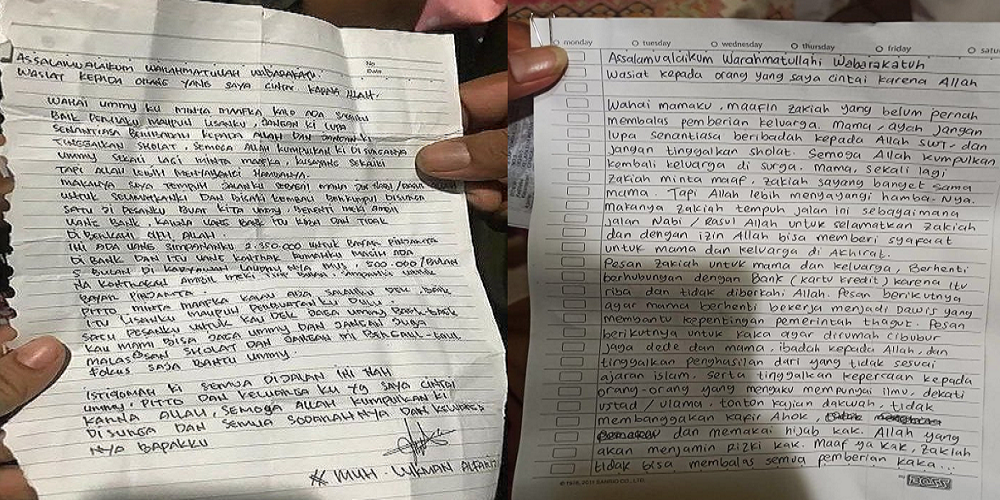 No
Date
ASSALAMUALAIKUM WARAHMATULLAH WABARAKATU
WASIAT KEPADA ORANG YANG SAYA CINTAI KARNA ALLAH.
WAHAI UMMY KU MINTA MAAFKA KALO ADA SALAHKU
BAIK PERILAKU MAUPUN LISANKU, JANGAN KI LUPA
SENANTIASA BERIBADAH KEPADA ALLAH DAN JANGAN KI
TINGGALKAN SHOLAT, SEMOGA ALLAH KUMPULKAN KI DI SURGANYA
UMMY SEKALI LAGI MINTA MAAFKA, KUSAYANG SEKALIKI
TAPI ALLAH LEBIH MENYAYANGI HAMBANYA.
MAKANYA SAYA TEMPUH JALANKU SEBAGAI MANA JALAN NABI/RASUL
UNTUK SELAMATKANKI DAN DISAAT KEMBALI BERKUMPUL DISURGA
SATU JI PESANKU BUAT KITA UMMY, BERENTI MEKI AMBIL
UANG BANK, KARNA UANG BANK ITU RIBA DAN TIDAK
DIBERKAHI OLEH ALLAH
INI ADA UANG SIMPANANKU 2.350.000 UNTUK BAYAR PINJAMTA
DI BANK DAN ITU YANG KONTRAK RUMAHKU MASIH ADA
5 BULAN DI 500.000/BULAN
NA KONTRAKAN AMBIL UNTUK
BAYAR PINJAMTA.
PITTO MINTA MAAFKA KALAU ADA SALAHKU DEK, BAIK
ITU LISANKU MAUPUN PERBUATANKU DULU.
SATU PESANKU UNTUK KAU DEK JAGA UMMY BAEK-BAEK
KAU MAMI BISA JAGA UMMY DAN JANGAN JUGA
MALAS SAN SHOLAT DAN JANGAN MI BAIK GAUL-GAUL
FOKUS SAJA BANTU UMMY.
ISTIQOMAH KI SEMUA DIJALAN INI NAH
UMMY, PITTO DAN KELUARGA KU YG SAYA CINTAI
KARNA ALLAH, SEMOGA ALLAH KUMPULKAN KI
DISURGA DAN SEMUA SODARAHNYA DAN KELUARGA
NYA BAPAKKU
MUH. LUKMAN ALFARIZ
monday tuesday wednesday thursday friday satu
Assalamualaikum Warahmatullahi Wabarakatuh
Wasiat kepada orang yang saya cintai karena Allah
Wahai mamaku, maafin zakiah yang belum pernah
membalas pemberian keluarga. Mama, ayah jangan
lupa senantiasa beribadah kepada Allah SWT. dan
jangan tinggalkan sholat. Semoga Allah kumpulkan
kembali keluarga di surga. mama, sekali lagi
zakiah minta maaf, zakiah sayang banget sama
mama. Tapi Allah lebih menyayangi hamba-Nya.
Makanya zakiah tempuh jalan ini sebagaimana
jalan Nabi / Rasul Allah untuk selamatkan zakiah
dan dengan izin Allah bisa memberi syafaat
untuk mama dan keluarga di Akhirat.
Pesan Zakiah untuk mama dan keluarga, Berhenti
berhubungan dengan Bank (kartu kredit) karena itu
riba dan tidak diberkahi Allah. Pesan berikutnya
agar mama berhenti bekerja menjadi Dawis yang
membantu kepentingan pemerintah thagut. Pesan
berikutnya untuk kaka agar dirumah cibubur
jaga dede dan mama, ibadah kepada Allah, dan
tinggalkan penghasilan dari yang tidak sesuai
ajaran islam, serta tinggalkan kepercaan kepada
orang-orang yang mengaku mempunyai ilmu, dekati
ustad / ulama, tonton kajian dakwah, tidak
membanggakan kafir Ahok
dan memakai hijab kak. Allah yang
akan menjamin rizki kak. Maaf ya kak, zakiah
tidak bisa membalas semua pemberian kaka...
© 1976, 2011 SANRIO CO., LTD.